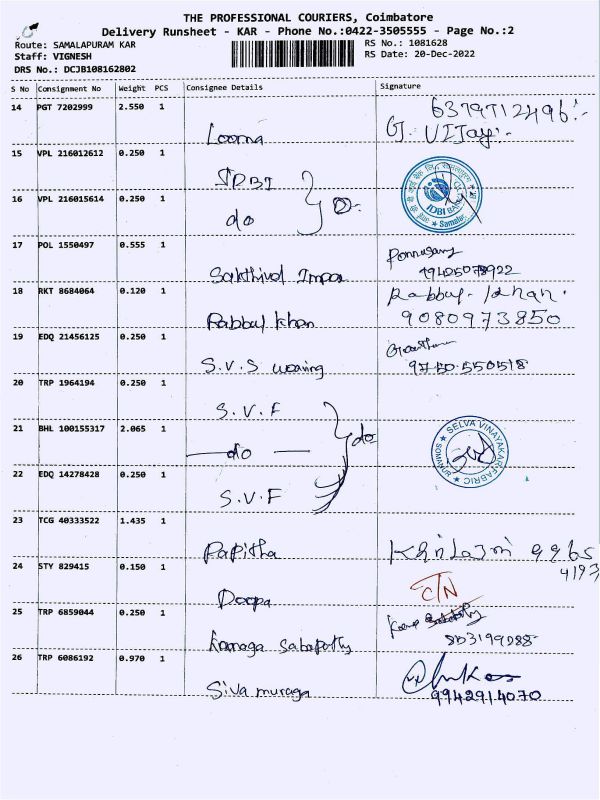 THE PROFESSIONAL COURIERS, Coimbatore
Delivery Runsheet - KAR - Phone No.:0422-3505555 - Page No.:2
Route: SAMALAPURAM KAR
RS No.: 1081628
Staff: VIGNESH
RS Date: 20-Dec-2022
DRS No.: DCJB108162802
S No Consignment No Weight PCS Consignee Details Signature
14 PGT 7202999 2.550 1
6379712496
Looma G. Vijay
15 VPL 216012612 0.250 1
IDBI
16 VPL 216015614 0.250 1
do
IDBI BANK
Samalac
17 POL 1550497 0.555 1
Ponnusamy
Sakthivel Impex
18 RKT 8684064 0.120 1
Rabbul Khan
Rabbul Khan 9080973850
19 EDQ 21456125 0.250 1
S.V.S weaving 9750.550518
20 TRP 1964194 0.250 1
S.V.F
21 BHL 100155317 2.065 1
do do
SELVA VINAYAKAR FABRIC
SOMANUR
22 EDQ 14278428 0.250 1
S.V.F
23 TCG 40333522 1.435 1
Papitha 9965
24 STY 829415 0.150 1
4193
Deepa C/N
25 TRP 6859044 0.250 1
Kanaga Sabapathy
26 TRP 6086192 0.970 1
Siva muruga 9942914070